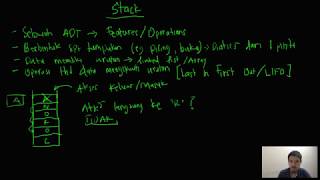 Stack
- Sebuah ADT → Features/Operations
- Berbentuk spt tumpukan (eg piring, buku) → Diakses dari 1 pintu
- Data memiliki urutan → linked list / Array
- Operasi thd data mengikuti urutan [Last in First Out/LIFO]
Akses keluar/masuk
A
X
N
D
R
O
C
Akses langsung ke 'R' ?
TIDAK